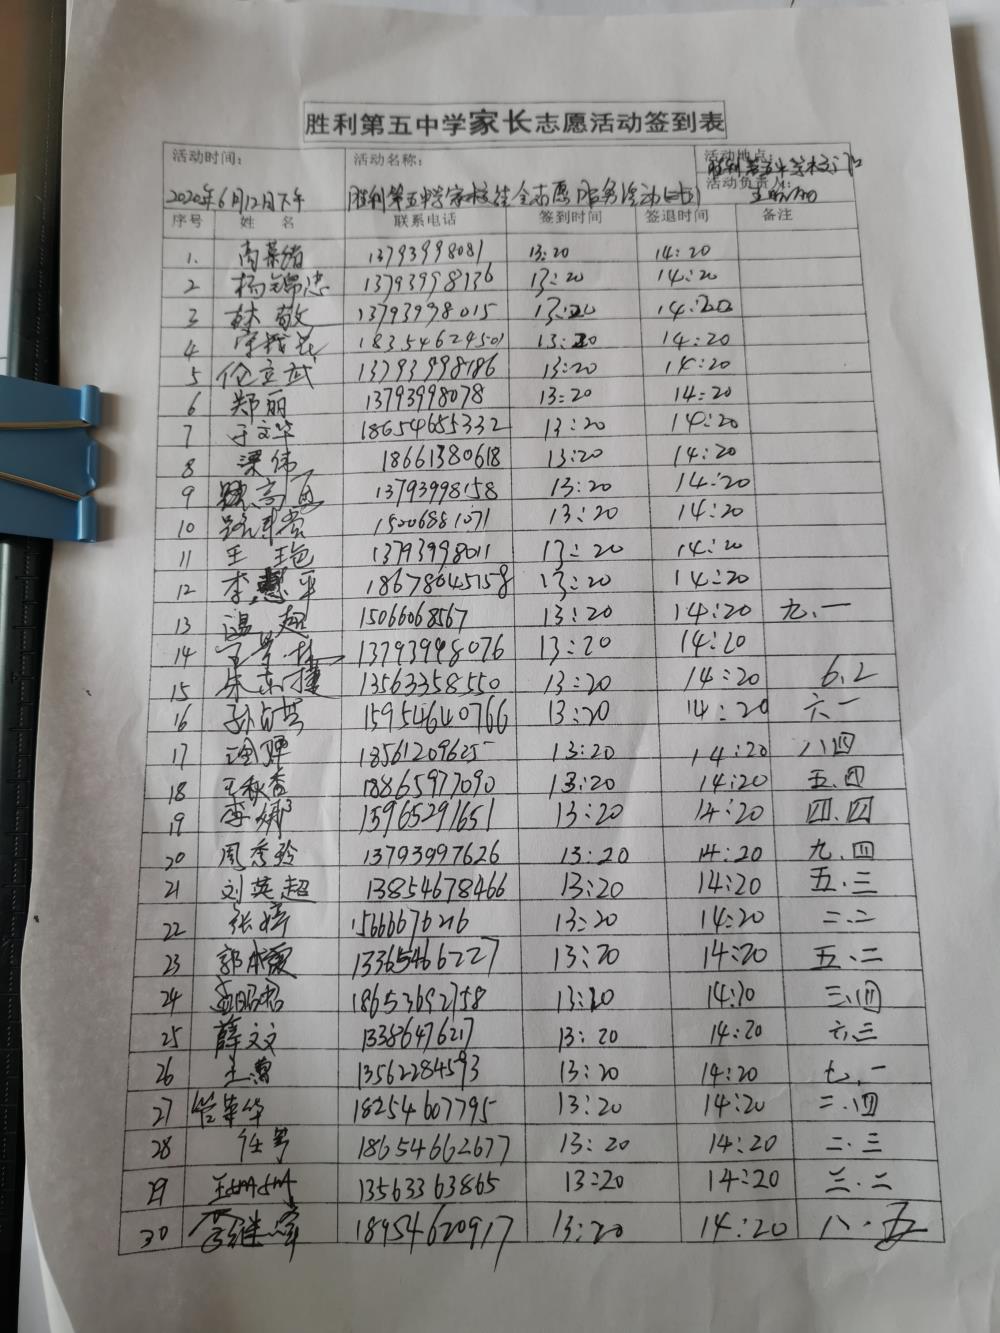 胜利第五中学家长志愿活动签到表
活动时间: 活动名称: 活动地点:
胜利第五中学校门口
2020年6月12日下午 胜利第五中学家校 全志愿服务活动 活动负责人:
序号 姓 名 联系电话 签到时间 签退时间 备注
1. 高荣绪 13793998081 13:20 14:20
2 杨锦忠 13793998136 13:20 14:20
3 林敬 13793998015 13:20 14:20
4 18354624501 13:20 14:20
5 伦立武 13793998186 13:20 14:20
6 郑丽 13793998078 13:20 14:20
7 于文华 18654655332 13:20 14:20
8 梁伟 18661380618 13:20 14:20
9 13793998158 13:20 14:20
10 15006881071 13:20 14:20
11 王艳 13793998011 13:20 14:20
12 李慧平 18678645158 13:20 14:20
13 温超 15066068567 13:20 14:20 九.一
14 13793998076 13:20 14:20
15 朱东捷 13563358550 13:20 14:20 6.2
16 孙贞芸 15954640766 13:20 14:20 六一
17 13561209625 13:20 14:20 八四
18 王秋香 18865977090 13:20 14:20 五.四
19 李娜 15965291651 13:20 14:20 四.四
20 周秀玲 13793997626 13:20 14:20 九.四
21 刘英超 13854678466 13:20 14:20 五.三
22 张婷 15666676216 13:20 14:20 二.二
23 13365466227 13:20 14:20 五.二
24 18653692758 13:20 14:20 三.四
25 薛文文 13386476217 13:20 14:20 六.三
26 13562284593 13:20 14:20 七.一
27 管華华 18254607795 13:20 14:20 二.四
28 18654662677 13:20 14:20 二.三
29 王姗姗 13563363865 13:20 14:20 三.二
30 18954620917 13:20 14:20 八.五